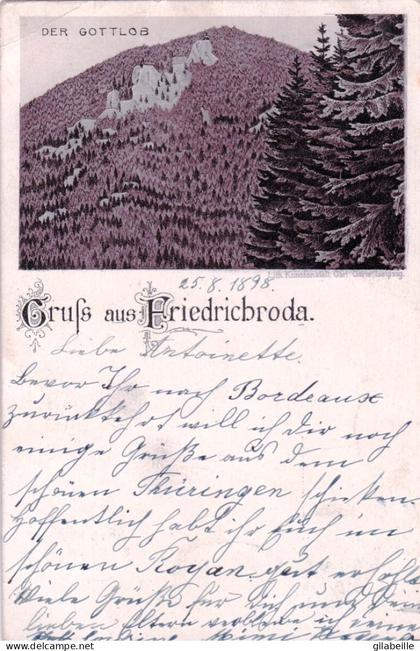 DER GOTTLOB
Lith. Kunstanstalt Carl Garte, Leipzig.
25.8.1898.
Gruss aus Friedrichroda.
Liebe Antoinette.
Bevor Ihr nach Bordeaux
zurückkehrt will ich dir noch
einige Grüße aus dem
schönen Thüringen schicken.
Hoffentlich habt ihr Euch im
schönen Royan gut erholt
Viele Grüße für dich und
lieben Eltern
Mimi
© delcampe.net
gilabeille